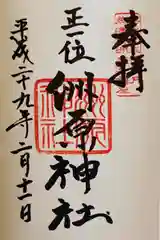 奉拝
正一位 洲原神社
平成二十九年二月十一日